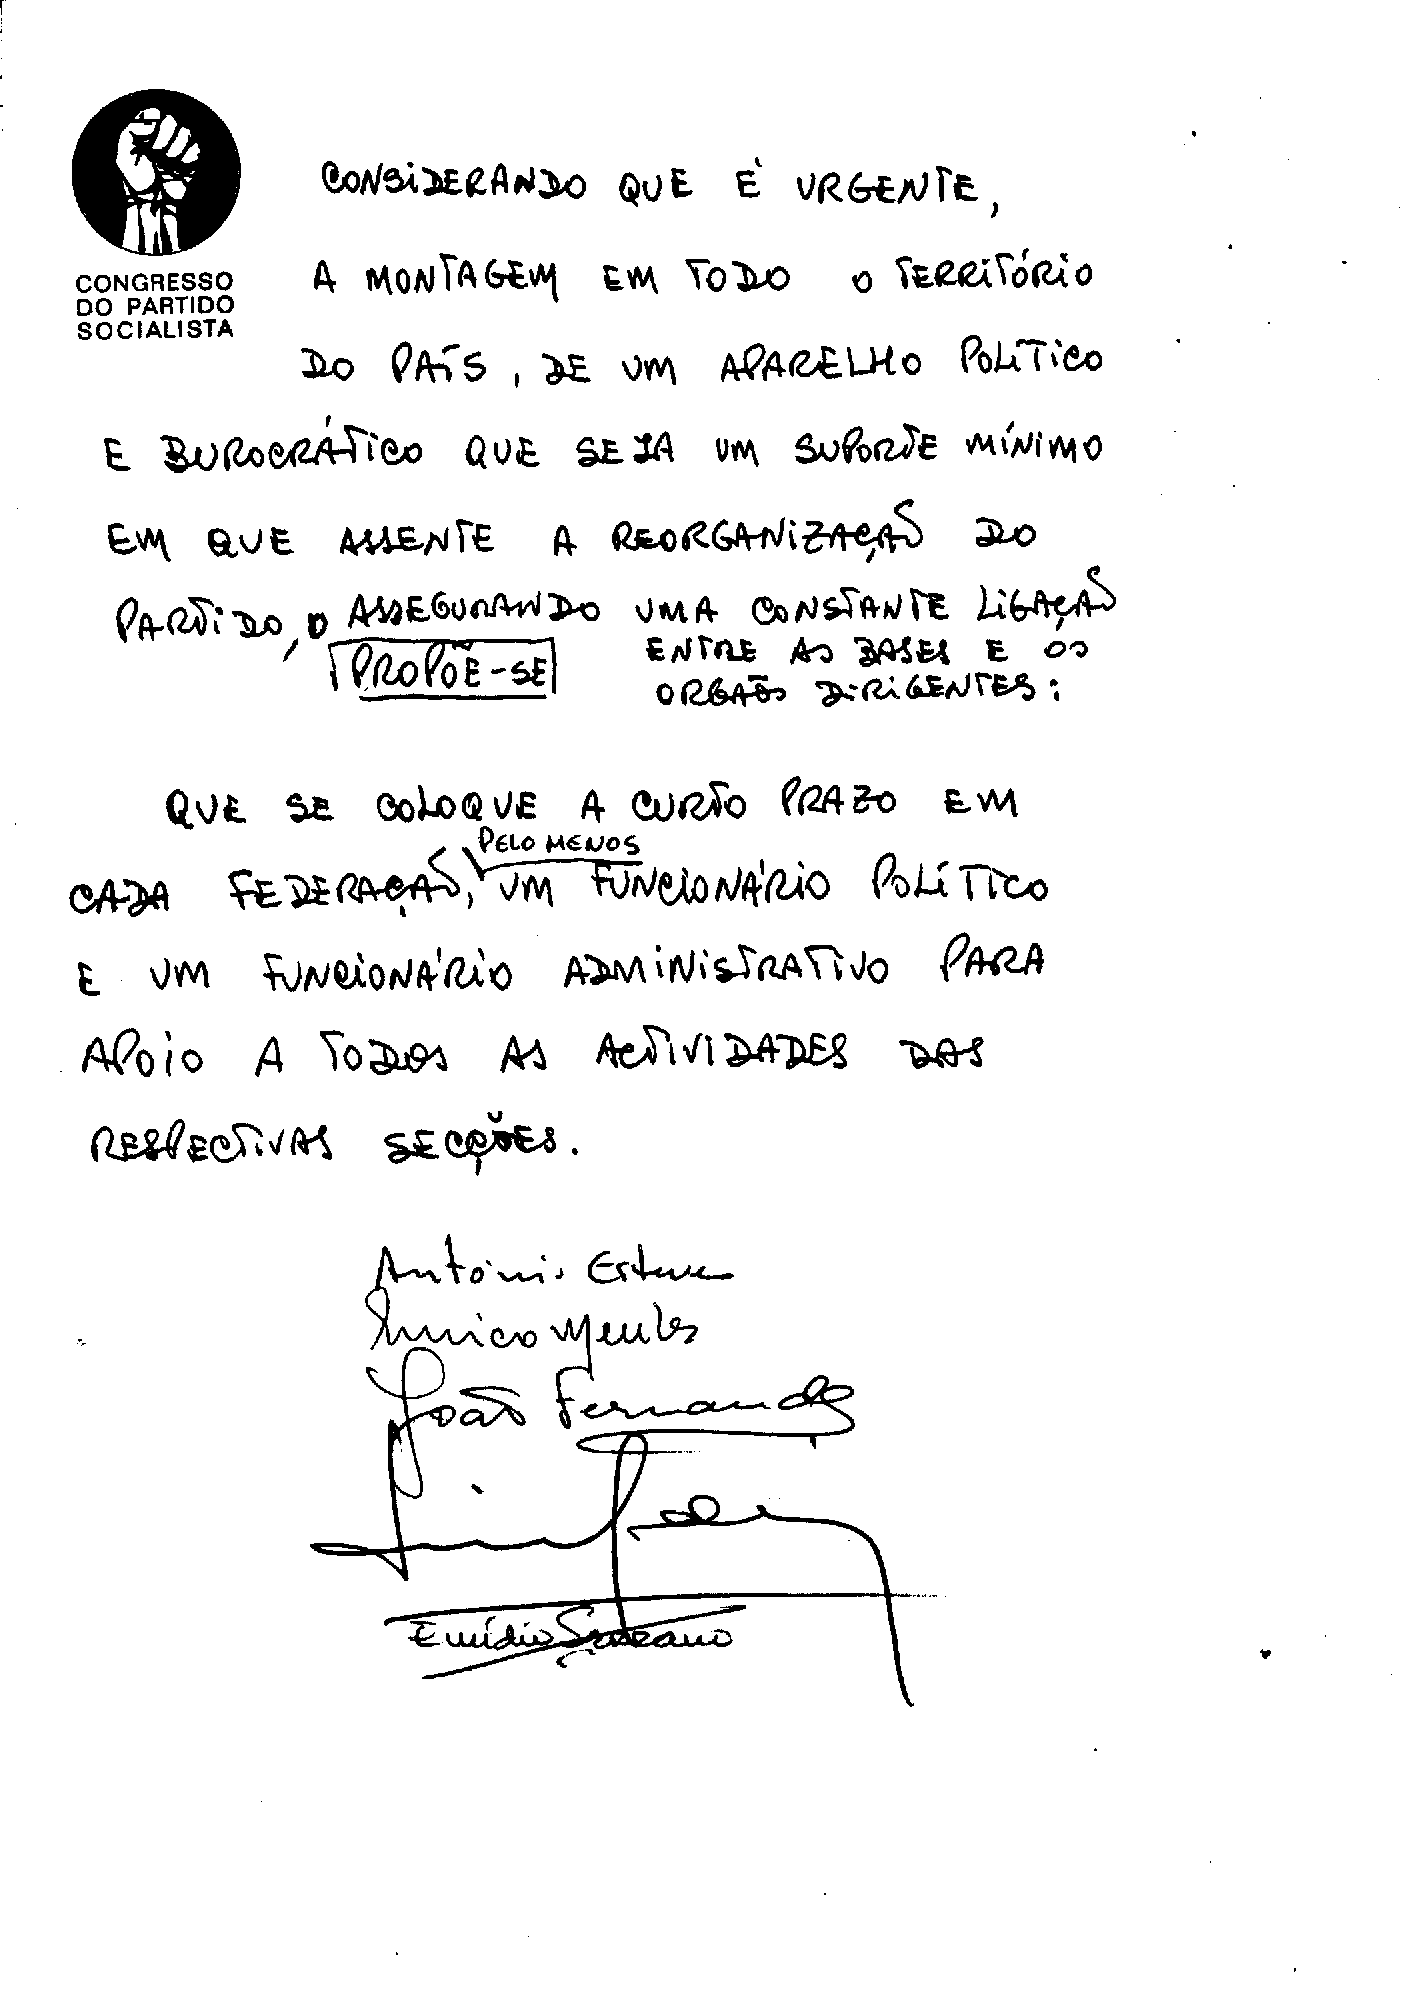 CONGRESSO
DO PARTIDO
SOCIALISTA
CONSIDERANDO QUE É URGENTE,
A MONTAGEM EM TODO O TERRITÓRIO
DO PAÍS, DE UM APARELHO POLÍTICO
E BUROCRÁTICO QUE SEJA UM SUPORTE MÍNIMO
EM QUE ASSENTE A REORGANIZAÇÃO DO
PARTIDO, ASSEGURANDO UMA CONSTANTE LIGAÇÃO
ENTRE AS BASES E OS
ORGÃOS DIRIGENTES:
PROPÕE-SE
QUE SE COLOQUE A CURTO PRAZO EM
PELO MENOS
CADA FEDERAÇÃO, UM FUNCIONÁRIO POLÍTICO
E UM FUNCIONÁRIO ADMINISTRATIVO PARA
APOIO A TODOS AS ACTIVIDADES DAS
RESPECTIVAS SECÇÕES.
António Esteves
Mendes
João Fernandes
Emídio Serrano